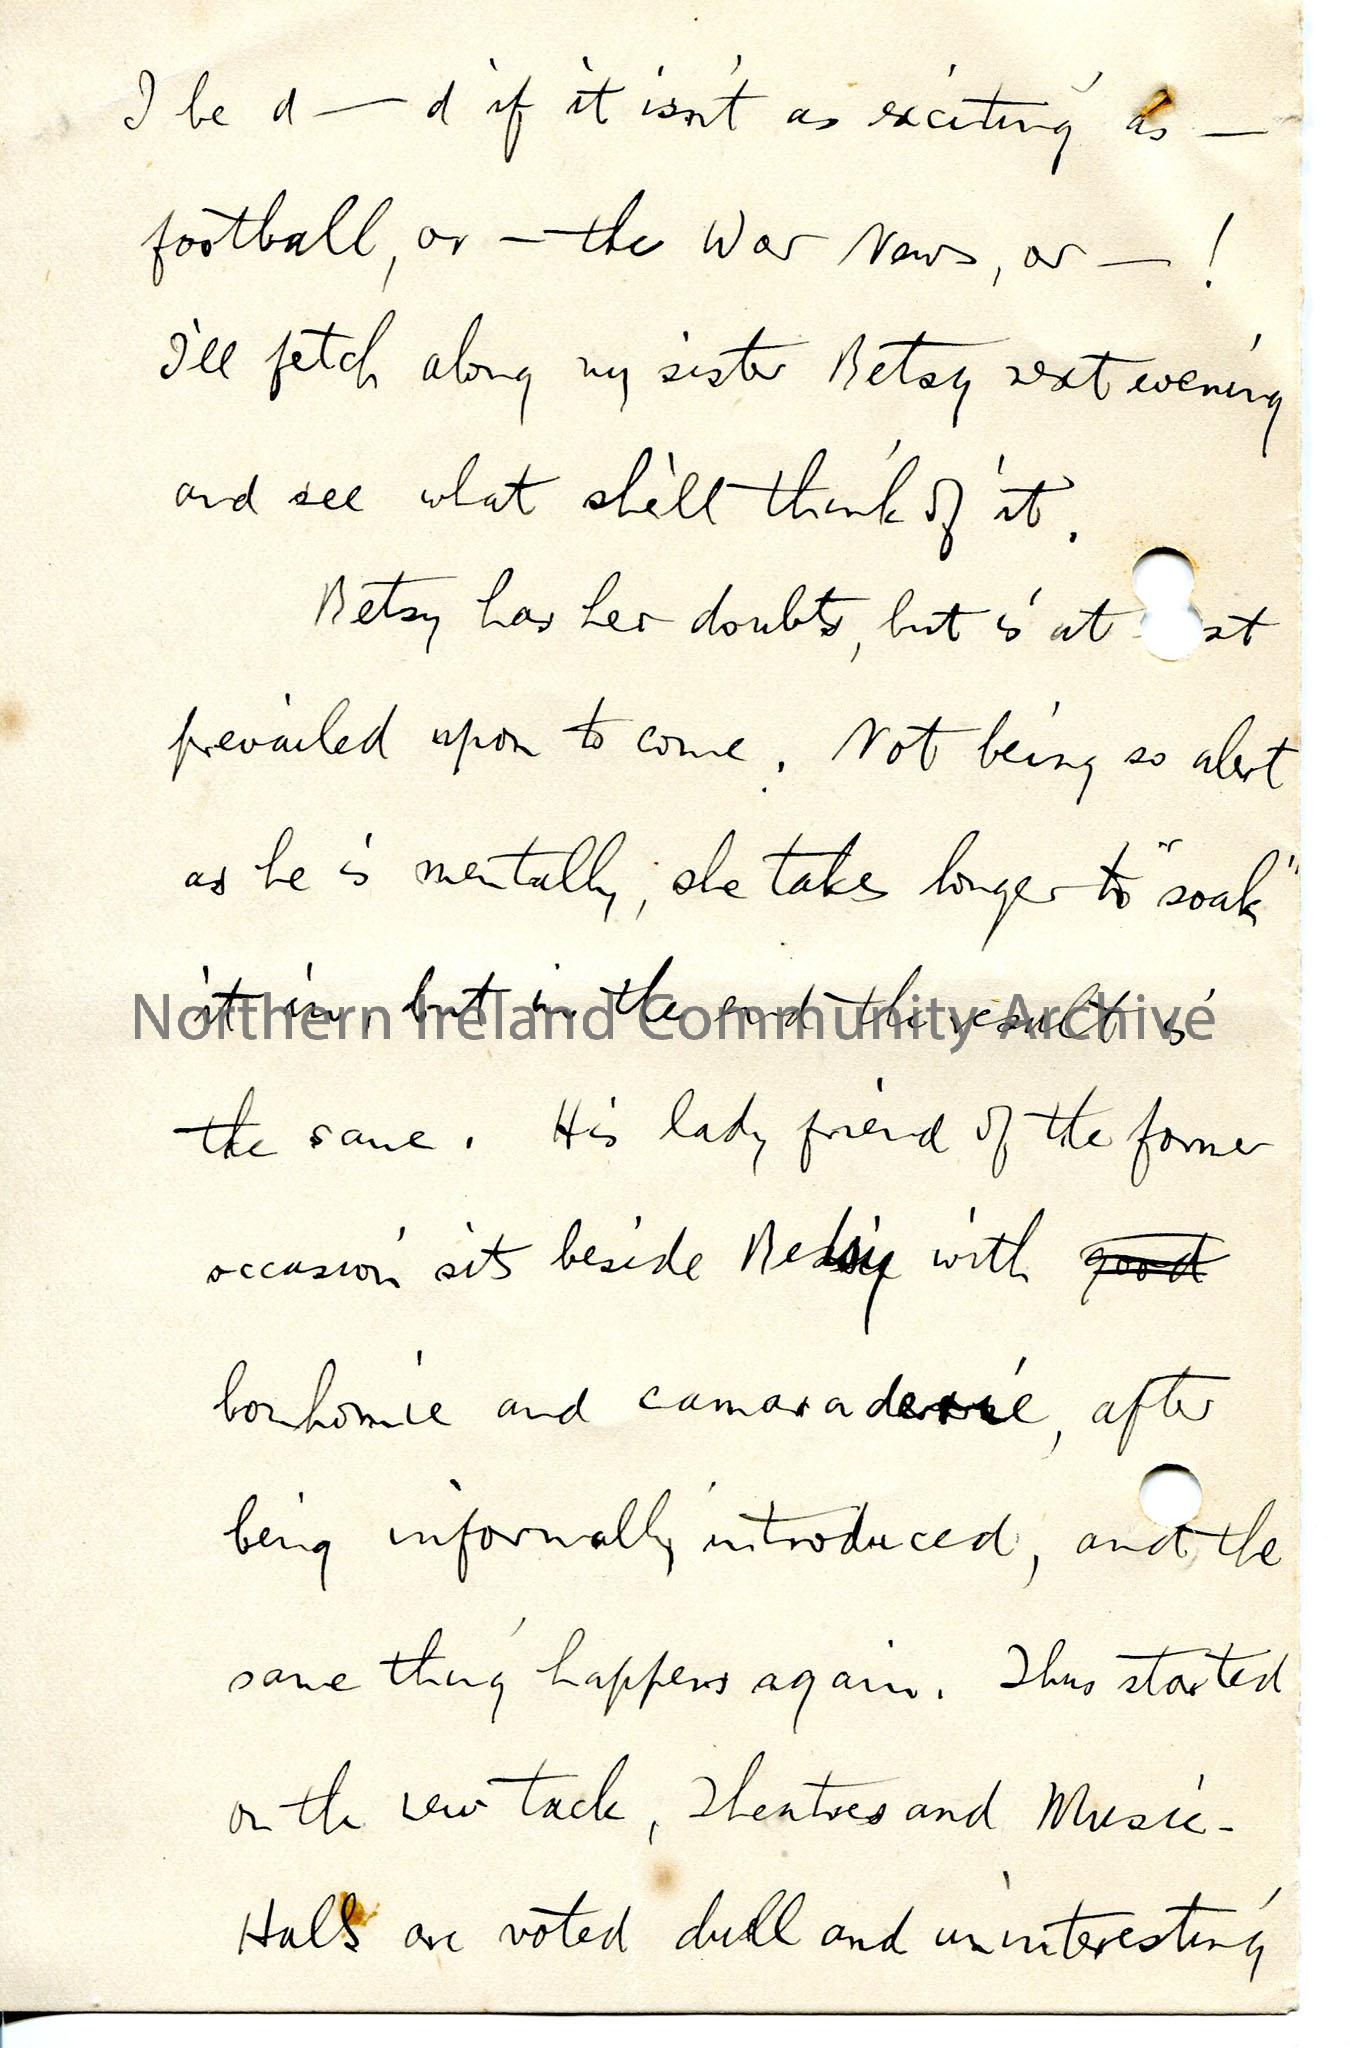 I be d — d if it isn't as exciting as —
football, or — the War News, or — !
I'll fetch along my sister Betsy next evening
and see what she'll think of it.
Betsy has her doubts, but is at st
prevailed upon to come. Not being so alert
as he is mentally, she takes longer to "soak"
it in, but in the end the result is
Northern Ireland Community Archive
the same. His lady friend of the former
occasion sits beside Betsy with good
bonhomie and camaraderie, after
being informally introduced, and the
same thing happens again. Thus started
on the new tack, Theatres and Music-
Halls are voted dull and uninteresting